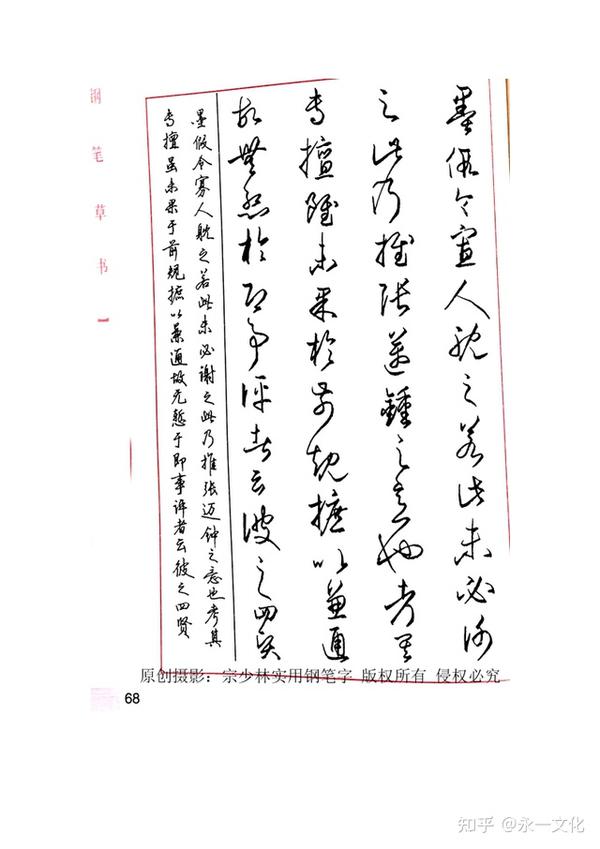 墨假令寡人耽之若此未必謝
之此乃推張邁鍾之意也考其
專擅雖未果於前規摭以兼通
故無慙於即事評者云彼之四賢
墨假令寡人耽之若此未必谢之此乃推张迈钟之意也考其
专擅虽未果于前规摭以兼通故无惭于即事评者云彼之四贤
钢笔草书一
原创摄影：宗少林实用钢笔字 版权所有 侵权必究
68
知乎 @永一文化